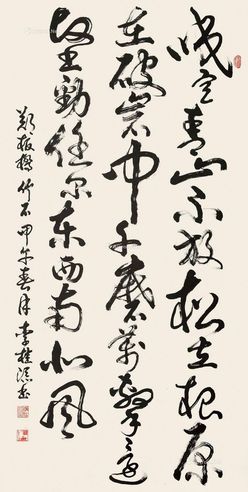 咬定青山不放松立根原
在破岩中千磨萬擊还
坚劲任尔东西南北风
郑板桥竹石甲午春月李桂书